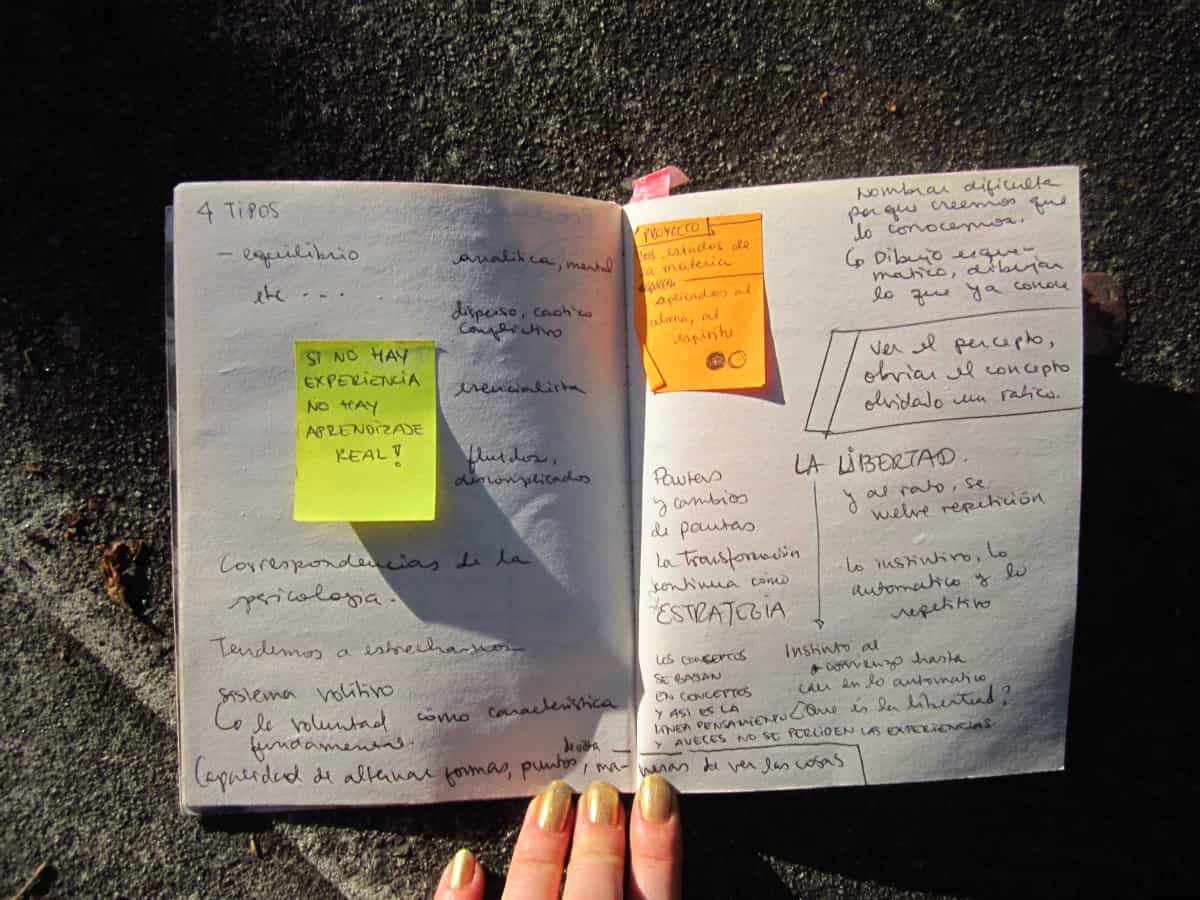 4 TIPOS
- equilibrio
etc ...
analitica, mental
disperso, caotico
esencialista
fluidos,
descomplicados
SI NO HAY
EXPERIENCIA
NO HAY
APRENDIZAJE
REAL!
Correspondencias de la
psicologia.
Tendemos a estrecharnos
Sistema volitivo
la voluntad como característica
fundamental.
Capacidad de alternar formas, puntos de vista, maneras de ver las cosas
PROYECTO
los estados de
la materia
aplicados al
alma, al
espiritu
Nombrar dificulta
porque creemos que
lo conocemos.
Dibujo esquematico, dibujar
lo que ya conoce
Ver el percepto,
obviar el concepto
olvidarlo un ratico.
LA LIBERTAD.
y al rato, se
vuelve repetición
Lo instintivo, lo
automatico y lo
repetitivo
Pautas
y cambios
de pautas
La Transformación
continua como
ESTRATEGIA
Instinto al
comienzo hasta
caer en lo automatico
¿Que es la libertad?
LOS CONCEPTOS
SE BASAN
EN CONCEPTOS
Y ASI ES LA
LINEA PENSAMIENTO
Y AVECES NO SE PERCIBEN LAS EXPERIENCIAS